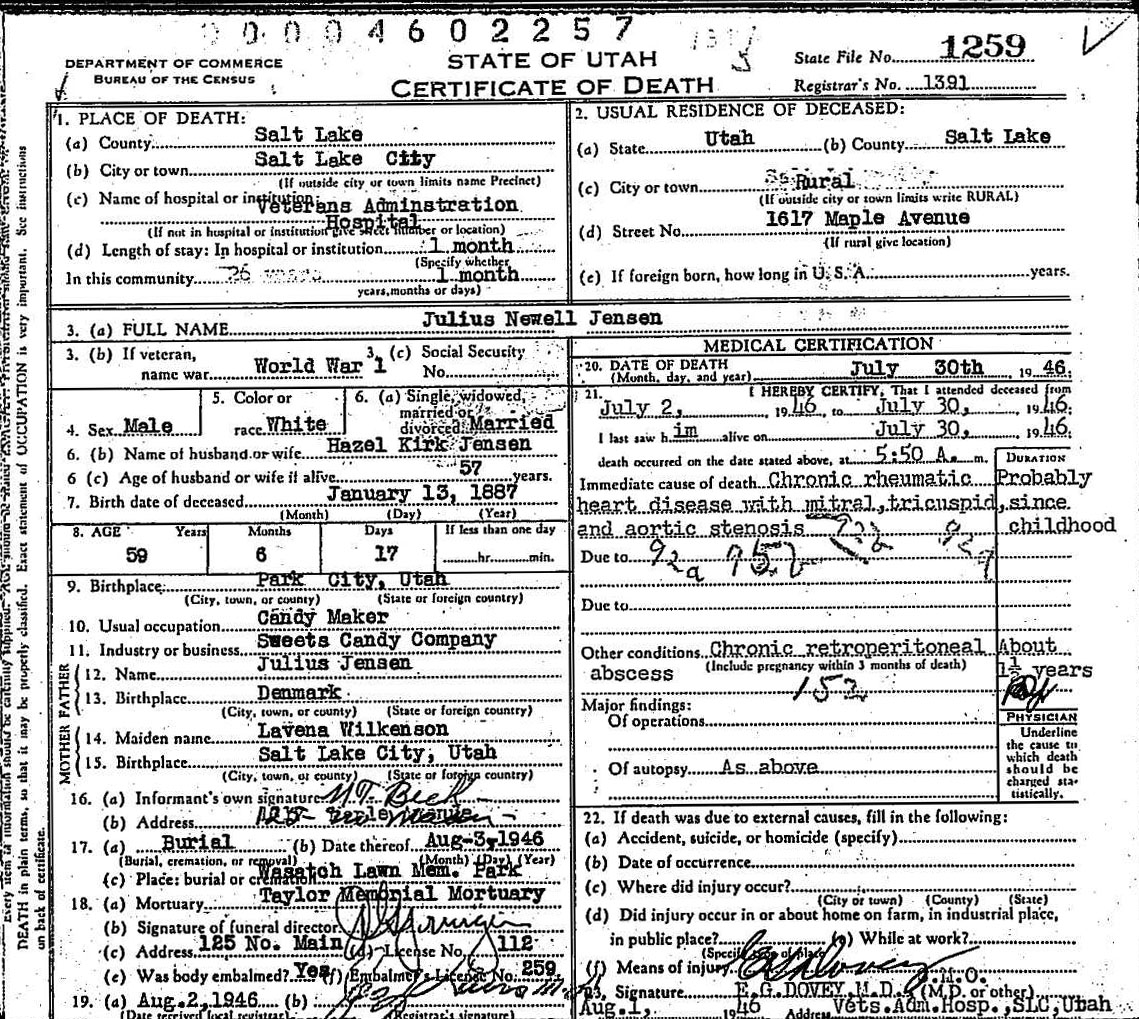 00004602257
DEPARTMENT OF COMMERCE
BUREAU OF THE CENSUS
STATE OF UTAH
CERTIFICATE OF DEATH
State File No. 1259
Registrar's No. 1391
1. PLACE OF DEATH:
(a) County Salt Lake
(b) City or town Salt Lake City
(If outside city or town limits name Precinct)
(c) Name of hospital or institution: Veterans Adminstration
Hospital
(If not in hospital or institution give street number or location)
(d) Length of stay: In hospital or institution 1 month
(Specify whether
In this community 26 years 1 month
years, months or days)
2. USUAL RESIDENCE OF DECEASED:
(a) State Utah (b) County Salt Lake
(c) City or town Rural
(If outside city or town limits write RURAL)
(d) Street No. 1617 Maple Avenue
(If rural give location)
(e) If foreign born, how long in U. S. A. years.
3. (a) FULL NAME Julius Newell Jensen
3. (b) If veteran, name war World War 1
3. (c) Social Security No.
4. Sex Male
5. Color or race White
6. (a) Single, widowed, married or divorced Married
6. (b) Name of husband or wife Hazel Kirk Jensen
6 (c) Age of husband or wife if alive 57 years.
7. Birth date of deceased January 13, 1887
(Month) (Day) (Year)
8. AGE Years Months Days If less than one day
59 6 17 hr. min.
9. Birthplace Park City, Utah
(City, town, or county) (State or foreign country)
10. Usual occupation Candy Maker
11. Industry or business Sweets Candy Company
FATHER
12. Name Julius Jensen
13. Birthplace Denmark
(City, town, or county) (State or foreign country)
MOTHER
14. Maiden name Lavena Wilkenson
15. Birthplace Salt Lake City, Utah
(City, town, or county) (State or foreign country)
16. (a) Informant's own signature N.T. Beck
(b) Address
17. (a) Burial (b) Date thereof Aug-3,1946
(Burial, cremation, or removal) (Month) (Day) (Year)
(c) Place: burial or cremation Wasatch Lawn Mem. Park
18. (a) Mortuary Taylor Memorial Mortuary
(b) Signature of funeral director
(c) Address 125 No. Main (d) License No. 112
(e) Was body embalmed? Yes (f) Embalmer's License No. 259
19. (a) Aug. 2, 1946 (b)
(Date received local registrar) (Registrar's signature)
MEDICAL CERTIFICATION
20. DATE OF DEATH
(Month, day, and year) July 30th 1946.
21. I HEREBY CERTIFY, That I attended deceased from
July 2, 1946, to July 30, 1946.
I last saw him alive on July 30, 1946.
death occurred on the date stated above, at 5:50 A. m.
DURATION
Immediate cause of death Chronic rheumatic Probably
heart disease with mitral, tricuspid, since
and aortic stenosis childhood
Due to 92a
Due to
Other conditions Chronic retroperitoneal About
(Include pregnancy within 3 months of death)
abscess 1½ years
152
Major findings:
Of operations
Of autopsy As above
PHYSICIAN
Underline
the cause to
which death
should be
charged sta-
tistically.
22. If death was due to external causes, fill in the following:
(a) Accident, suicide, or homicide (specify)
(b) Date of occurrence
(c) Where did injury occur?
(City or town) (County) (State)
(d) Did injury occur in or about home on farm, in industrial place,
in public place? (e) While at work?
(Specify type of place)
(f) Means of injury
23. Signature E.G. DOVEY, M.D. (M.D. or other)
Aug. 1, 1946 Address Vets. Adm. Hosp., SLC, Utah
DEATH in plain terms, so that it may be properly classified. Exact statement of OCCUPATION is very important. See instructions
on back of certificate.